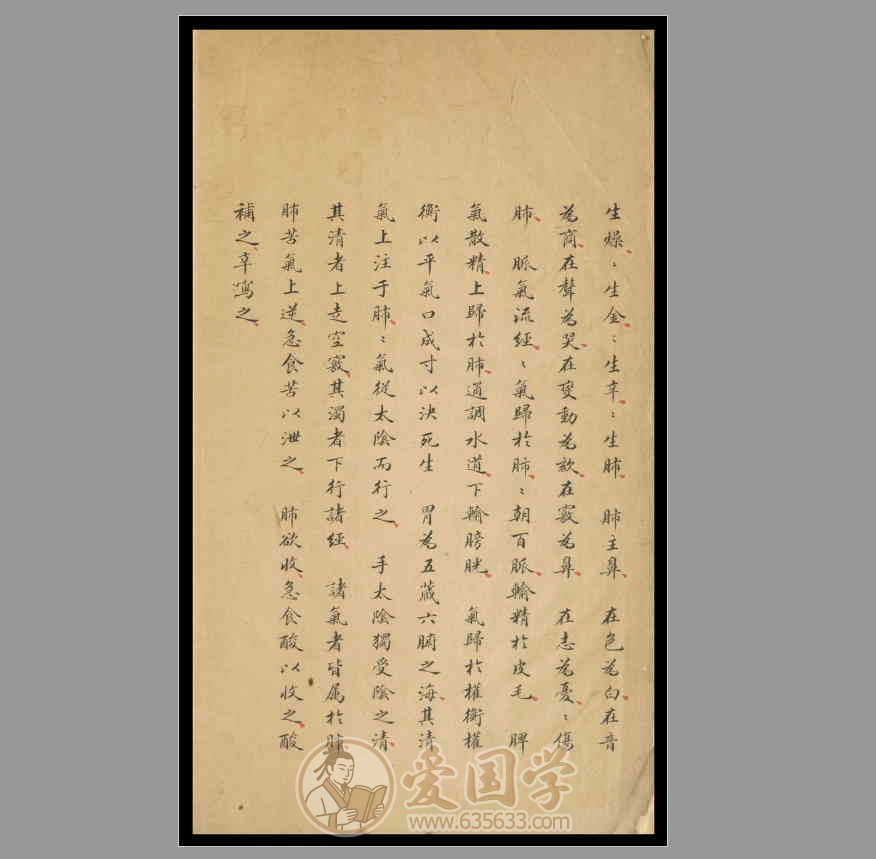 生燥、〻生金、〻生辛、〻生肺　肺主鼻、在色為白、在音
為商、在聲為哭、在變動為欬、在竅為鼻、在志為憂、〻傷
肺、脈氣流經、〻氣歸於肺、〻朝百脈、輸精於皮毛、脾
氣散精、上歸於肺、通調水道、下輸膀胱、氣歸於權衡權
衡以平氣口成寸以決死生　胃為五藏六腑之海、其清
氣上注于肺、〻氣從太陰而行之、手太陰獨受陰之清、
其清者上走空竅、其濁者下行諸經、諸氣者皆屬於肺、
肺苦氣上逆、急食苦以泄之、肺欲收、急食酸以收之、酸
補之、辛瀉之、
爱国学
www.635633.com